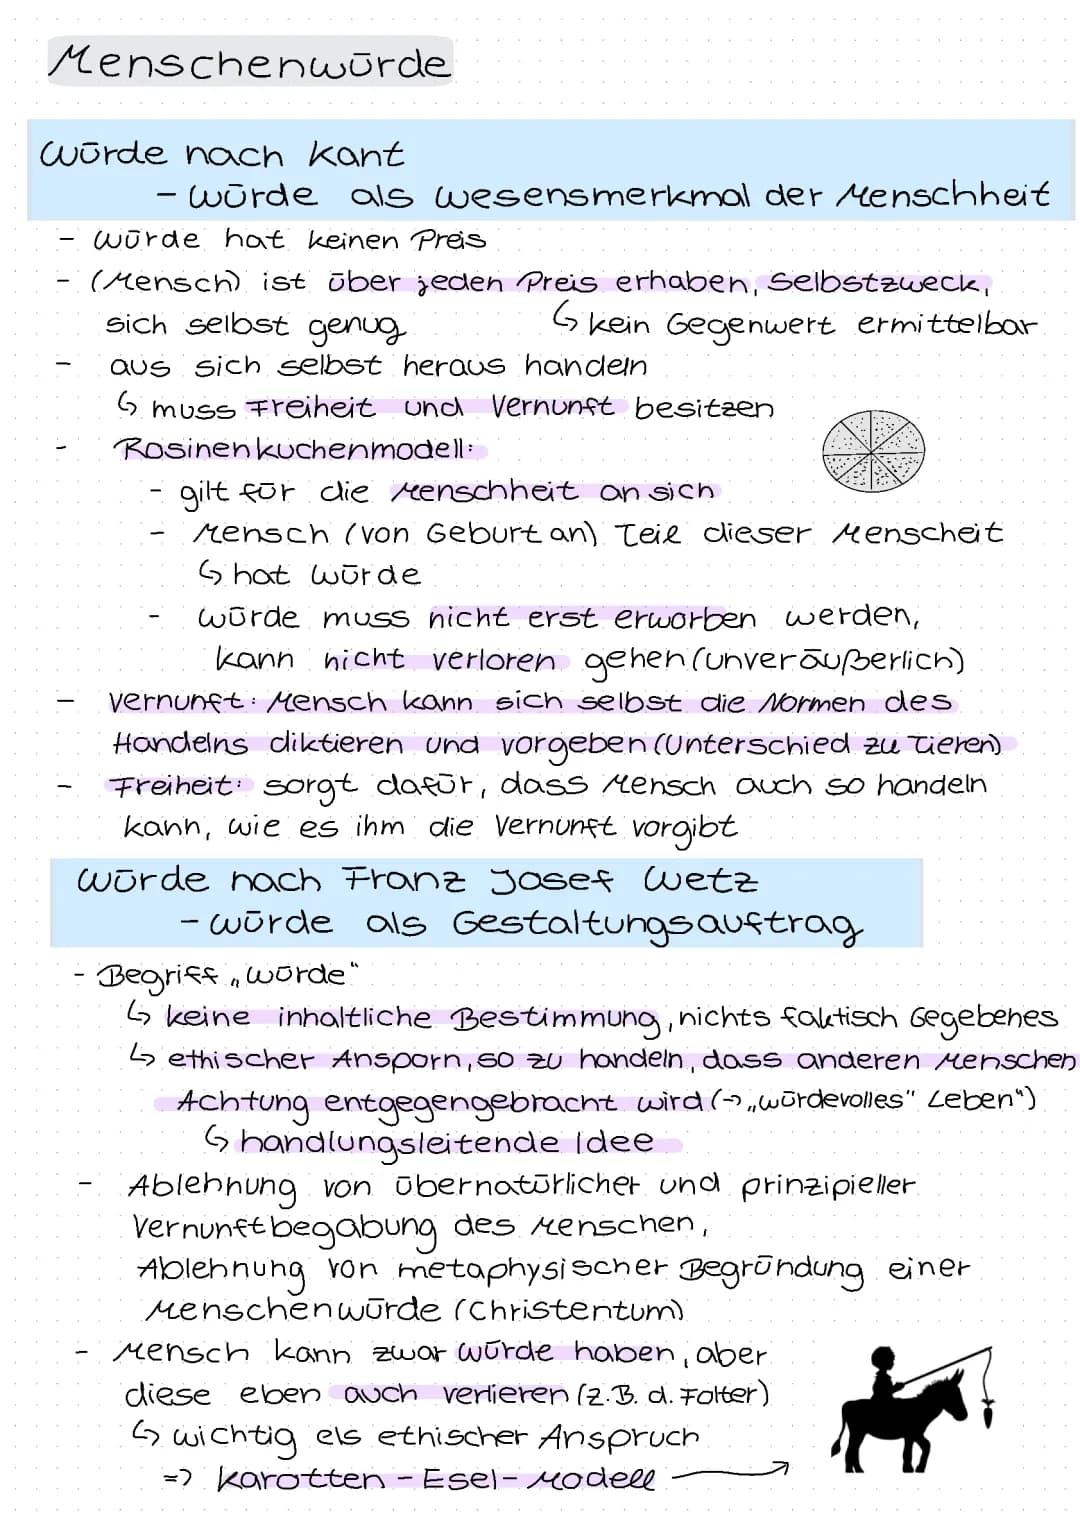 Menschenwürde
Würde nach Kant
- Würde als Wesensmerkmal der Menschheit
- Würde hat keinen Preis
- (Mensch) ist über jeden Preis erhaben, Selbstzweck,
sich selbst genug ↳ kein Gegenwert ermittelbar
- aus sich selbst heraus handeln
↳ muss Freiheit und Vernunft besitzen
- Rosinenkuchenmodell:
- gilt für die Menschheit an sich
- Mensch (von Geburt an) Teil dieser Menscheit
↳ hat Würde
- Würde muss nicht erst erworben werden,
kann nicht verloren gehen (unveräußerlich)
- Vernunft: Mensch kann sich selbst die Normen des
Handelns diktieren und vorgeben (Unterschied zu Tieren)
- Freiheit: sorgt dafür, dass Mensch auch so handeln
kann, wie es ihm die Vernunft vorgibt
Würde nach Franz Josef Wetz
- Würde als Gestaltungsauftrag
- Begriff „Würde"
↳ keine inhaltliche Bestimmung, nichts faktisch Gegebenes
↳ ethischer Ansporn, so zu handeln, dass anderen Menschen
Achtung entgegengebracht wird (→ „würdevolles" Leben")
↳ handlungsleitende Idee
- Ablehnung von übernatürlicher und prinzipieller
Vernunftbegabung des Menschen,
Ablehnung von metaphysischer Begründung einer
Menschenwürde (Christentum)
- Mensch kann zwar Würde haben, aber
diese eben auch verlieren (z.B. d. Folter)
↳ wichtig els ethischer Anspruch
=> Karotten-Esel-Modell →